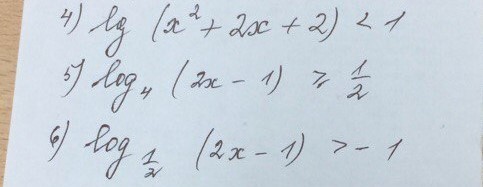 4) lg (x² + 2x + 2) < 1
5) log₄ (2x − 1) ⩾ 1/2
6) log_{1/2} (2x − 1) > −1